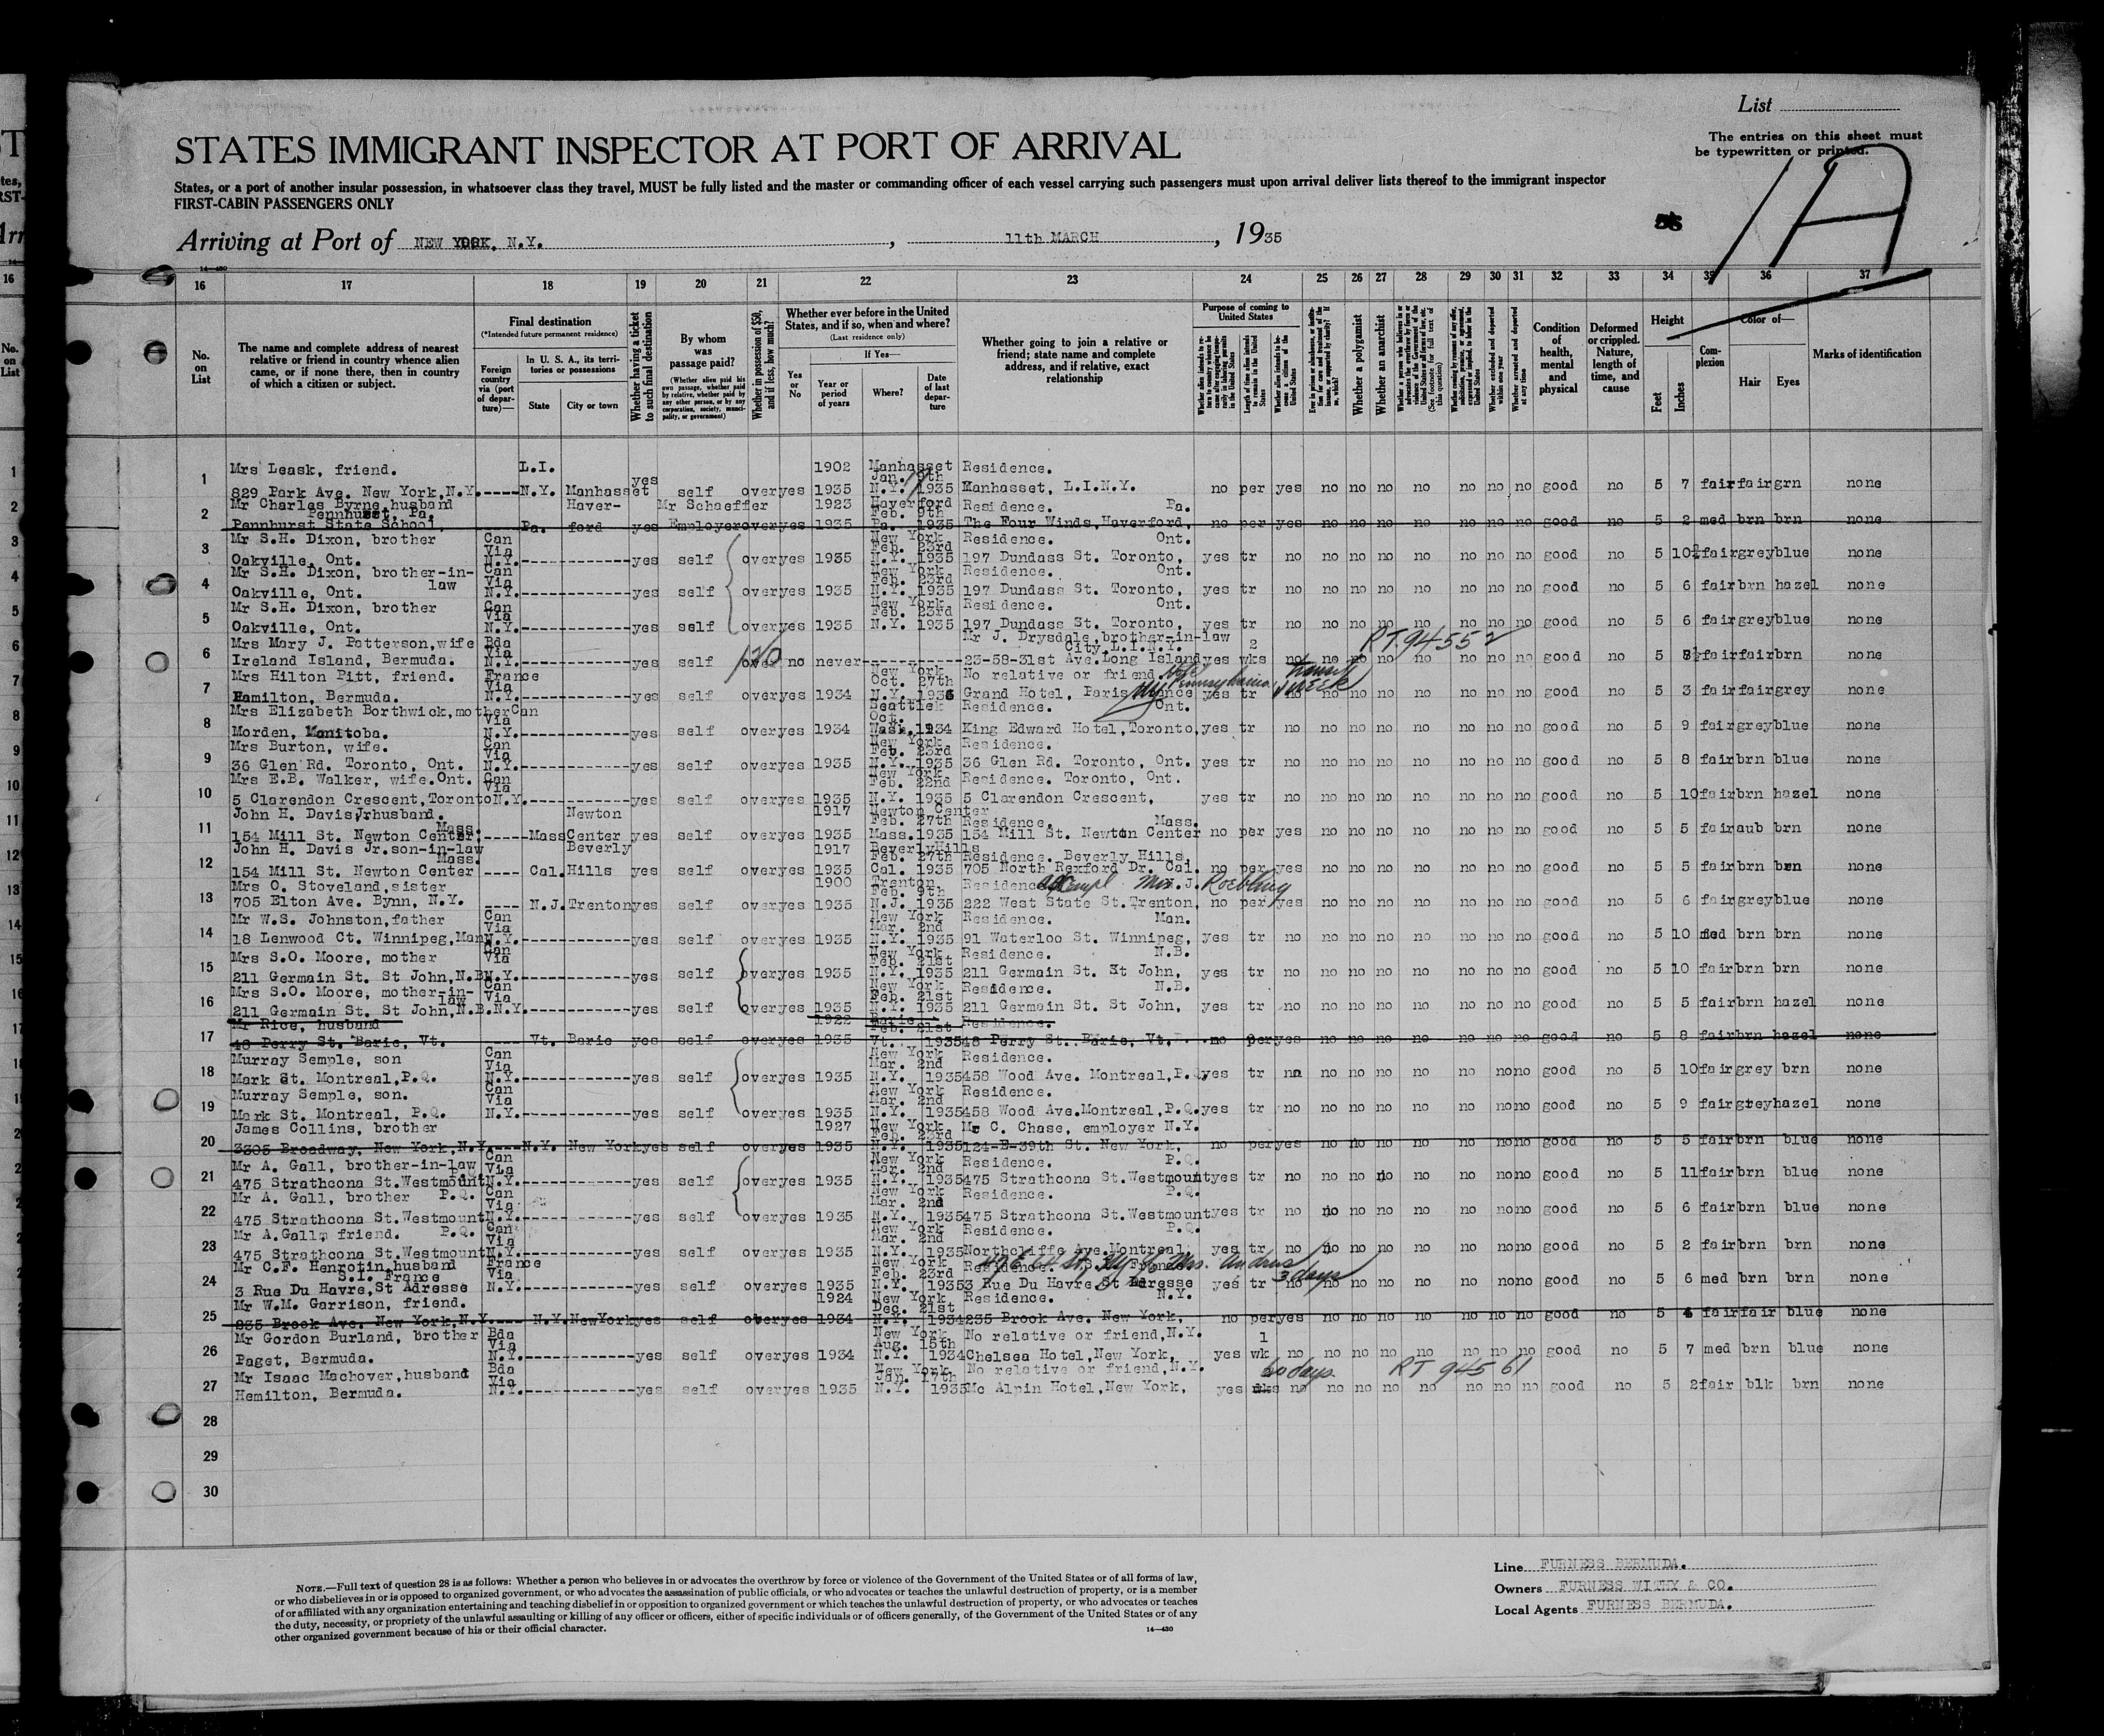 List
The entries on this sheet must
be typewritten or printed.
1A
STATES IMMIGRANT INSPECTOR AT PORT OF ARRIVAL
States, or a port of another insular possession, in whatsoever class they travel, MUST be fully listed and the master or commanding officer of each vessel carrying such passengers must upon arrival deliver lists thereof to the immigrant inspector
FIRST-CABIN PASSENGERS ONLY
Arriving at Port of NEW YORK, N.Y. , 11th MARCH , 1935
14—430
16 17 18 19 20 21 22 23 24 25 26 27 28 29 30 31 32 33 34 35 36 37
No. on List
The name and complete address of nearest relative or friend in country whence alien came, or if none there, then in country of which a citizen or subject.
Final destination
(*Intended future permanent residence)
Foreign country via (port of departure)—
In U. S. A., its territories or possessions
State
City or town
Whether having a ticket to such final destination
By whom was passage paid?
(Whether alien paid his own passage, whether paid by relative, whether paid by any other person, or by any corporation, society, municipality, or government)
Whether in possession of $50, and if less, how much?
Whether ever before in the United States, and if so, when and where?
(Last residence only)
Yes or No
If Yes—
Year or period of years
Where?
Date of last departure
Whether going to join a relative or friend; state name and complete address, and if relative, exact relationship
Purpose of coming to United States
Whether a polygamist
Whether an anarchist
Condition of health, mental and physical
Deformed or crippled. Nature, length of time, and cause
Height
Feet
Inches
Complexion
Color of—
Hair
Eyes
Marks of identification
1 Mrs Leask, friend. L.I. 1902 Manhasset Residence.
Jan. 9th
829 Park Ave. New York,N.Y.----N.Y. Manhasset yes self over yes 1935 N.Y. 1935 Manhasset, L.I.N.Y. no per yes no no no no no no no good no 5 7 fair fair grn none
2 Mr Charles Byrne,husband Haver- Mr Schaeffer 1923 Haverford Residence. Pa.
Pennhurst, Pa. Feb. 9th
Pennhurst State School, Pa. ford yes Employer over yes 1935 Pa. 1935 The Four Winds,Haverford, no per yes no no no no no no no good no 5 2 med brn brn none
3 Mr S.H. Dixon, brother Can Via New York Feb. 23rd Residence. Ont.
Oakville, Ont. N.Y.----yes self over yes 1935 N.Y. 1935 197 Dundass St. Toronto, yes tr no no no no no no no no good no 5 10½ fair grey blue none
4 Mr S.H. Dixon, brother-in-law Can Via New York Feb. 23rd Residence. Ont.
Oakville, Ont. N.Y.----yes self over yes 1935 N.Y. 1935 197 Dundass St. Toronto, yes tr no no no no no no no no good no 5 6 fair brn hazel none
5 Mr S.H. Dixon, brother Can Via New York Feb. 23rd Residence. Ont.
Oakville, Ont. N.Y.----yes self over yes 1935 N.Y. 1935 197 Dundass St. Toronto, yes tr no no no no no no no no good no 5 6 fair grey blue none
6 Mrs Mary J. Patterson,wife Bda Via Mr J. Drysdale,brother-in-law City,L.I.N.Y. 2 RT.94552
Ireland Island, Bermuda. N.Y.----yes self over no never---- 23-58-31st Ave.Long Island yes wks no no no no no no no no good no 5 8½ fair fair brn none
7 Mrs Hilton Pitt, friend. France Via New York Oct. 27th No relative or friend Hotel Pennsylvania NY transit 1 week
Hamilton, Bermuda. N.Y.----yes self over yes 1934 N.Y. 1936 Grand Hotel, Paris France yes tr no no no no no no no good no 5 3 fair fair grey none
8 Mrs Elizabeth Borthwick,mother Can Via Seattle Oct. Residence. Ont.
Morden, Manitoba. N.Y.----yes self over yes 1934 Wash.1934 King Edward Hotel,Toronto, yes tr no no no no no no no no good no 5 9 fair grey blue none
9 Mrs Burton, wife. Can Via New York Feb. 23rd Residence.
36 Glen Rd. Toronto, Ont. N.Y.----yes self over yes 1935 N.Y. 1935 36 Glen Rd. Toronto, Ont. yes tr no no no no no no no no good no 5 8 fair brn blue none
10 Mrs E.B. Walker, wife.Ont. Can Via New York Feb. 22nd Residence. Toronto, Ont.
5 Clarendon Crescent,Toronto N.Y.----yes self over yes 1935 N.Y. 1935 5 Clarendon Crescent, yes tr no no no no no no no no good no 5 10 fair brn hazel none
11 John H. Davis,Jr husband. Mass. Newton 1917 Newton Center Feb. 27th Residence. Mass.
154 Mill St. Newton Center, ----Mass Center yes self over yes 1935 Mass.1935 154 Mill St. Newton Center no per yes no no no no no no no good no 5 5 fair aub brn none
12 John H. Davis Jr.son-in-law Mass. Beverly 1917 Beverly Hills Feb. 27th Residence. Beverly Hills,
154 Mill St. Newton Center ---- Cal. Hills yes self over yes 1935 Cal. 1935 705 North Rexford Dr. Cal. no per yes no no no no no no no good no 5 5 fair brn brn none
13 Mrs O. Stoveland,sister 1900 Trenton Feb. 9th Residence Mrs. J. Roebling
705 Elton Ave. Bynn, N.Y. ---- N.J. Trenton yes self over yes 1935 N.J. 1935 222 West State St.Trenton, no per yes no no no no no no no good no 5 6 fair grey blue none
14 Mr W.S. Johnston,father Can Via New York Mar. 2nd Residence. Man.
18 Lenwood Ct. Winnipeg,Man. N.Y.----yes self over yes 1935 N.Y. 1935 91 Waterloo St. Winnipeg, yes tr no no no no no no no no good no 5 10 med brn brn none
15 Mrs S.O. Moore, mother Can Via New York Feb. 21st Residence. N.B.
211 Germain St. St John,N.B. N.Y.----yes self over yes 1935 N.Y. 1935 211 Germain St. St John, yes tr no no no no no no no no good no 5 10 fair brn brn none
16 Mrs S.O. Moore, mother-in-law Can Via New York Feb. 21st Residence. N.B.
211 Germain St. St John,N.B. N.Y.----yes self over yes 1935 N.Y. 1935 211 Germain St. St John, yes tr no no no no no no no no good no 5 5 fair brn hazel none
17 Mr Rice, husband 1922 Barie Feb. 21st Residence.
48 Perry St. Barie, Vt. Vt. Barie yes self over yes 1935 Vt. 1935 48 Perry St. Barie, Vt. no per yes no no no no no no no good no 5 8 fair brn hazel none
18 Murray Semple, son Can Via New York Mar. 2nd Residence.
Mark St. Montreal,P.Q. N.Y.----yes self over yes 1935 N.Y. 1935 458 Wood Ave. Montreal,P.Q. yes tr no no no no no no no no good no 5 10 fair grey brn none
19 Murray Semple, son. Can Via New York Mar. 2nd Residence.
Mark St. Montreal, P.Q. N.Y.----yes self over yes 1935 N.Y. 1935 458 Wood Ave.Montreal,P.Q. yes tr no no no no no no no no good no 5 9 fair grey hazel none
20 James Collins, brother 1927 New York Feb. 23rd Mr C. Chase, employer N.Y.
3305 Broadway, New York,N.Y.----N.Y. New York yes self over yes 1935 N.Y. 1935 124-E-39th St. New York, no per yes no no no no no no no good no 5 5 fair brn blue none
21 Mr A. Gall, brother-in-law P.Q. Can Via New York Mar. 2nd Residence. P.Q.
475 Strathcona St.Westmount N.Y.----yes self over yes 1935 N.Y. 1935 475 Strathcona St.Westmount yes tr no no no no no no no no good no 5 11 fair brn blue none
22 Mr A. Gall, brother P.Q. Can Via New York Mar. 2nd Residence. P.Q.
475 Strathcona St.Westmount N.Y.----yes self over yes 1935 N.Y. 1935 475 Strathcona St.Westmount yes tr no no no no no no no no good no 5 6 fair brn blue none
23 Mr A.Gall, friend. P.Q. Can Via New York Mar. 2nd Residence. P.Q.
475 Strathcona St.Westmount N.Y.----yes self over yes 1935 N.Y. 1935 Northcliffe Ave.Montreal, yes tr no no no no no no no no good no 5 2 fair brn brn none
24 Mr C.F. Henrotin,husband S.I. France France Via New York Feb. 23rd Residence. Mrs. Andrus 3 days
3 Rue Du Havre,St Adresse N.Y.----yes self over yes 1935 N.Y. 1935 3 Rue Du Havre,St Adresse yes tr no no no no no no no no good no 5 6 med brn brn none
25 Mr W.M. Garrison, friend. 1924 New York Dec. 21st Residence. N.Y.
935 Brook Ave. New York,N.Y.---- N.Y. New York yes self over yes 1934 N.Y. 1934 235 Brook Ave. New York, no per yes no no no no no no no good no 5 4 fair fair blue none
26 Mr Gordon Burland, brother Bda Via New York Aug. 15th No relative or friend,N.Y. 1
Paget, Bermuda. N.Y.----yes self over yes 1934 N.Y. 1934 Chelsea Hotel,New York, yes wk no no no no no no no no good no 5 7 med brn blue none
27 Mr Isaac Machover,husband Bda Via New York Jan. 17th No relative or friend,N.Y. 60 days RT 94561
Hemilton, Bermuda. N.Y.----yes self over yes 1935 N.Y. 1935 Mc Alpin Hotel,New York, yes wks no no no no no no no no good no 5 2 fair blk brn none
28
29
30
NOTE.—Full text of question 28 is as follows: Whether a person who believes in or advocates the overthrow by force or violence of the Government of the United States or of all forms of law,
or who disbelieves in or is opposed to organized government, or who advocates the assassination of public officials, or who advocates or teaches the unlawful destruction of property, or is a member
of or affiliated with any organization entertaining and teaching disbelief in or opposition to organized government or which teaches the unlawful destruction of property, or who advocates or teaches
the duty, necessity, or propriety of the unlawful assaulting or killing of any officer or officers, either of specific individuals or of officers generally, of the Government of the United States or of any
other organized government because of his or their official character.
14—430
Line FURNESS BERMUDA.
Owners FURNESS WITHY & CO.
Local Agents FURNESS BERMUDA.